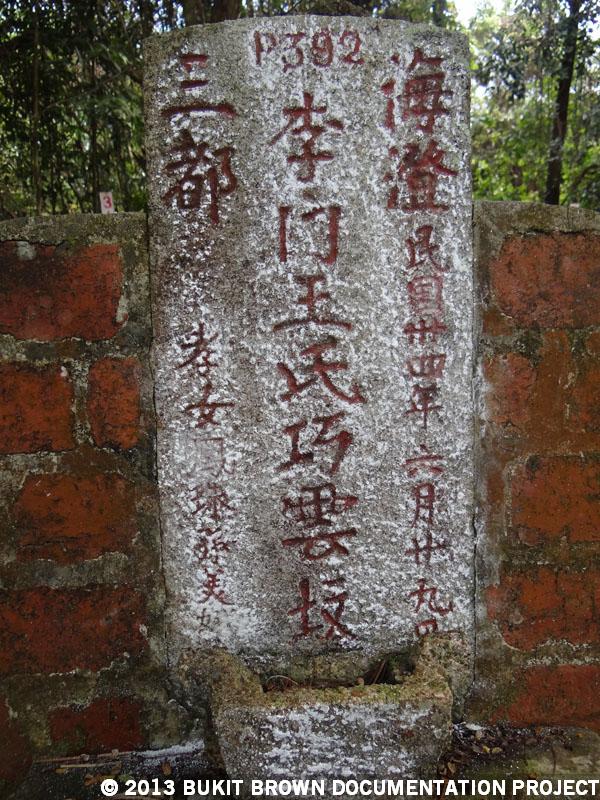 P392
海澄
民国廿四年六月廿九日
李门王氏巧雲坟
三都
孝女
3
© 2013 BUKIT BROWN DOCUMENTATION PROJECT